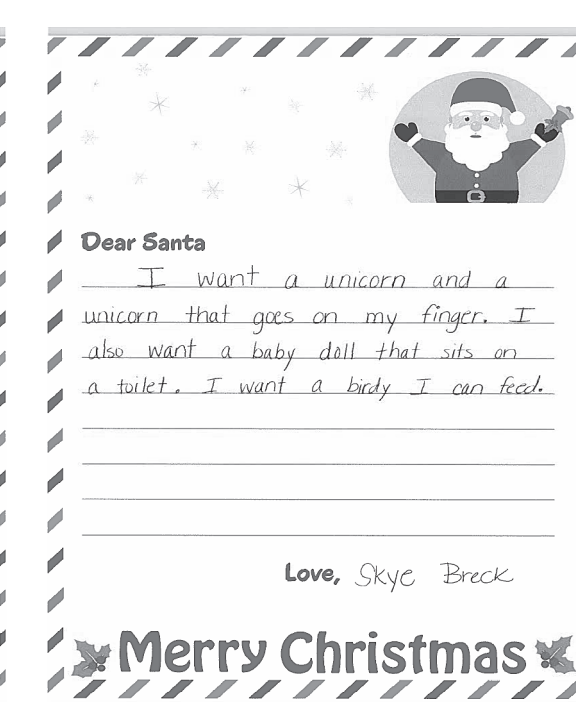 Dear Santa
I want a unicorn and a
unicorn that goes on my finger. I
also want a baby doll that sits on
a toilet. I want a birdy I can feed.
Love, Skye Breck
Merry Christmas